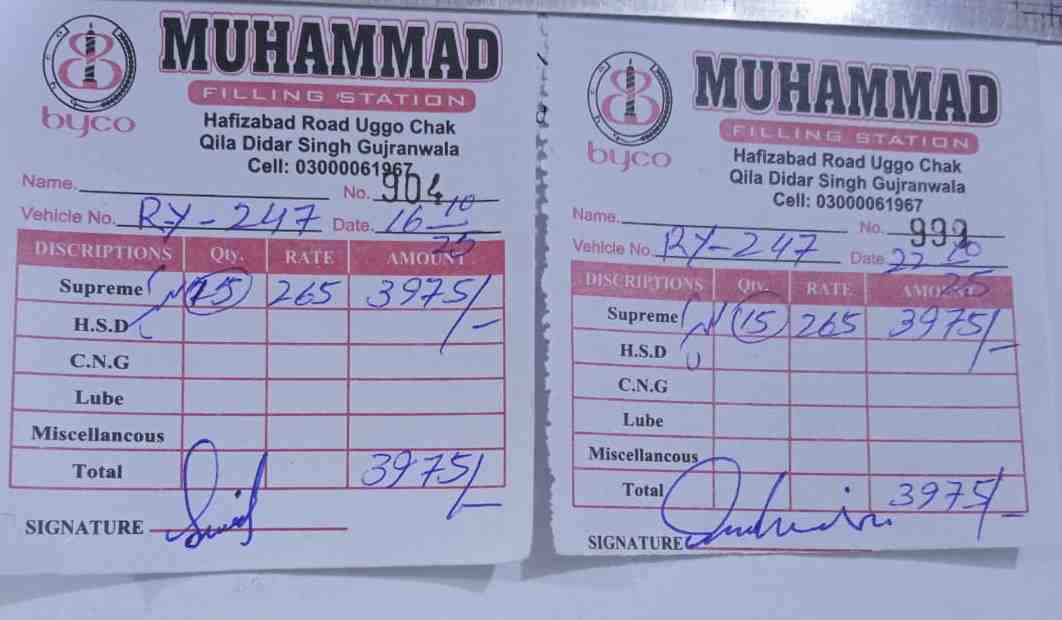 MUHAMMAD
FILLING STATION
byco
Hafizabad Road Uggo Chak
Qila Didar Singh Gujranwala
Cell: 03000061967
Name.
No. 904
Vehicle No. RY-247 Date. 16 10/25
DISCRIPTIONS Qty. RATE AMOUNT
Supreme 15 265 3975/-
H.S.D
C.N.G
Lube
Miscellancous
Total 3975/-
SIGNATURE
MUHAMMAD
FILLING STATION
byco
Hafizabad Road Uggo Chak
Qila Didar Singh Gujranwala
Cell: 03000061967
Name.
No. 999
Vehicle No. RY-247 Date 22 10/25
DISCRIPTIONS Qty. RATE AMOUNT
Supreme 15 265 3975/-
H.S.D
C.N.G
Lube
Miscellancous
Total 3975/-
SIGNATURE